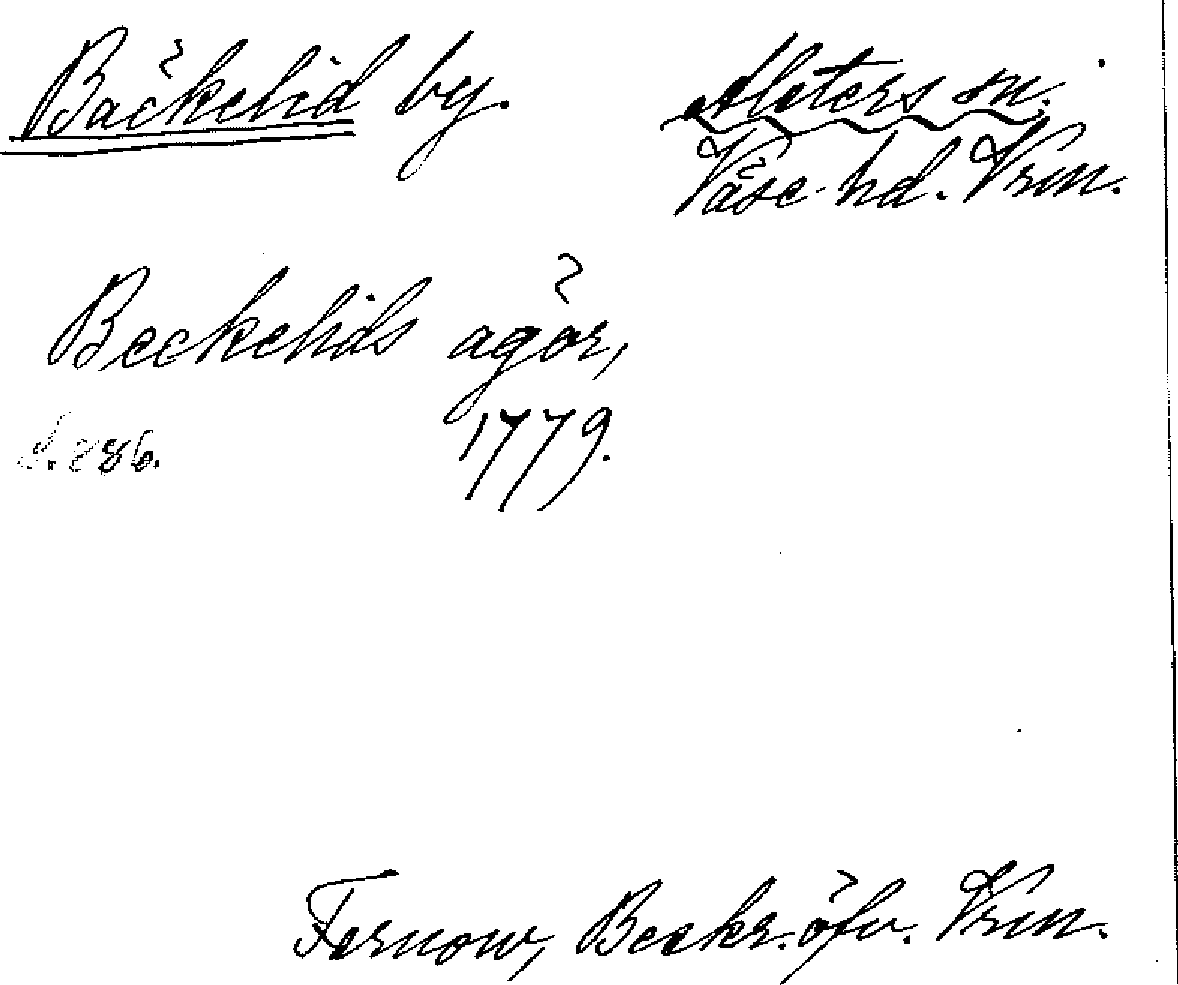 Bäckelid by.
Alsters sn.
Väse hd. Vrm.
Beckelids ägor,
1779.
S. 286.
Fernow, Beskr. öfv. Vrm.